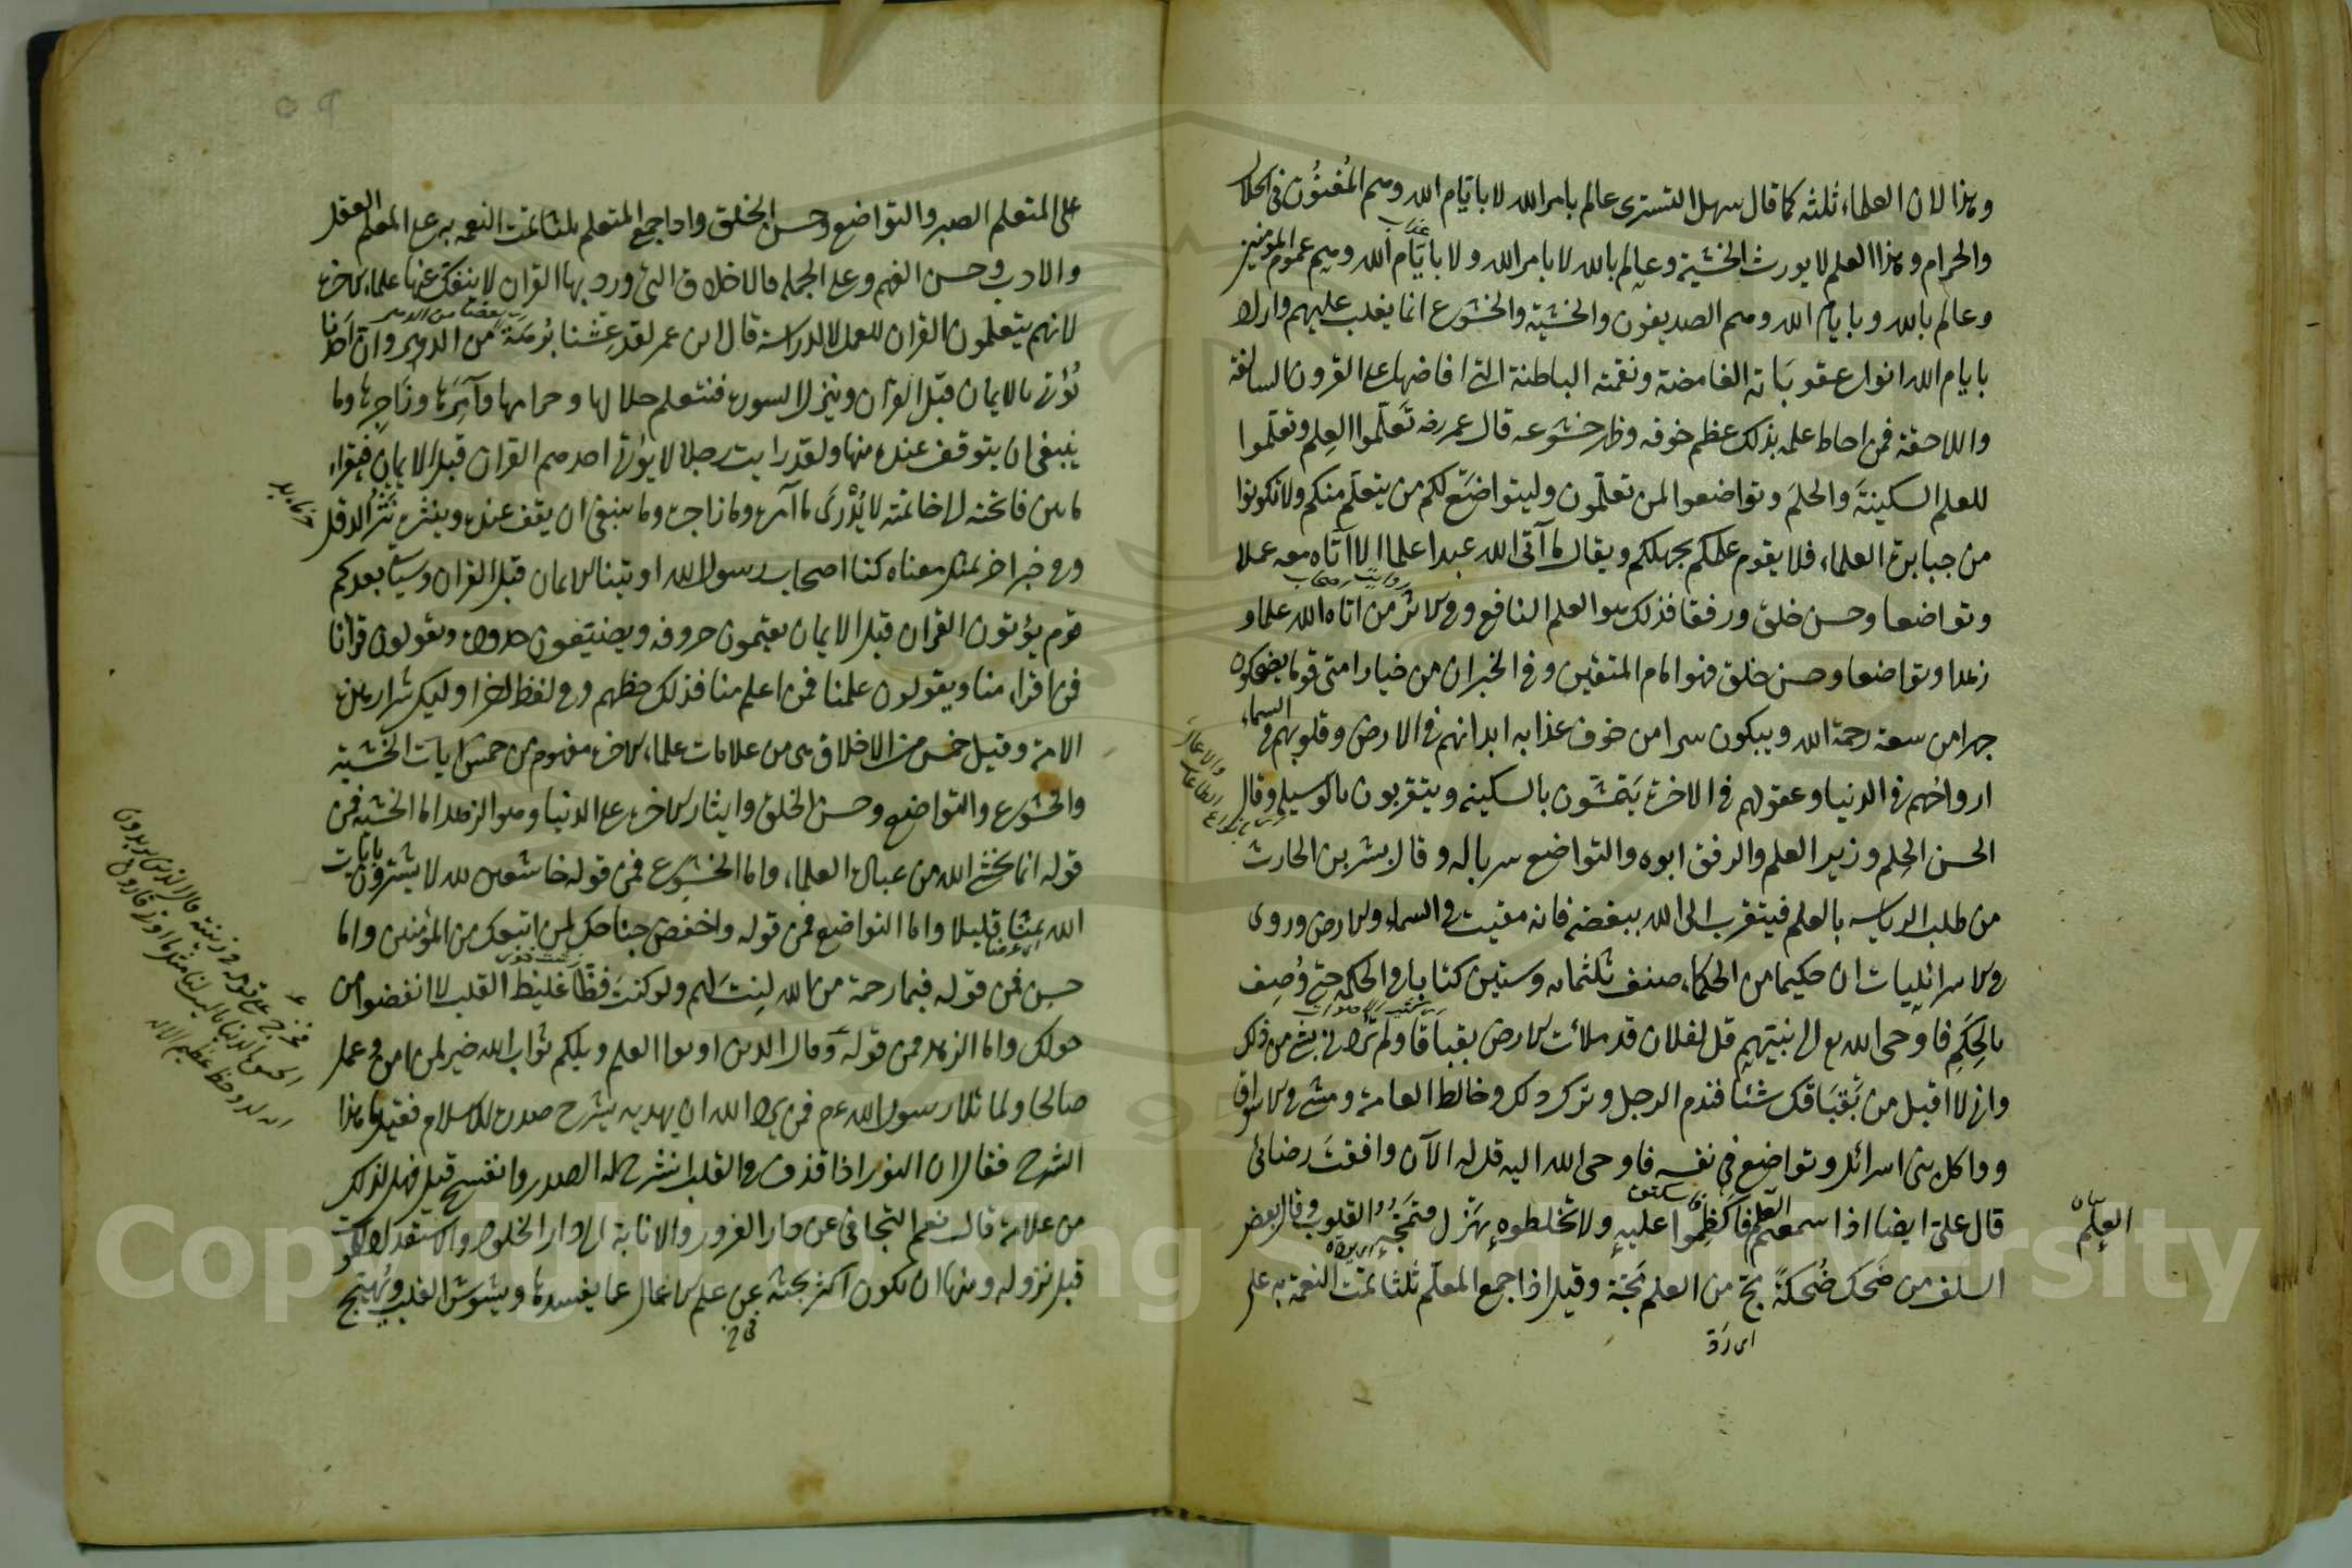 وهذا لان العلماء ثلثة كما قال سهل التسترى عالم بامر الله لا بايام الله وهم المفتون فى الحلال
والحرام وهذا العلم لا يورث الخشية وعالم بالله لا بامر الله ولا بايام الله وهم عموم المؤمنين
وعالم بالله وبايام الله وهم الصديقون والخشية والخشوع انما يغلب عليهم واراد
بايام الله انواع عقوباته الغامضة ونقمته الباطنة التى افاضها على القرون السالفة
واللاحقة فمن احاط علمه بذلك عظم خوفه وظهر خشوعه قال عمر رضه تعلّموا العلم وتعلّموا
للعلم السكينة والحلم وتواضعوا لمن تعلّمون وليتواضع لكم من يتعلّم منكم ولا تكونوا
من جبابرة العلماء فلا يقوم علمكم بجهلكم ويقال ما آتى الله عبدا علما الا آتاه معه حلما
وتواضعا وحسن خلق ورفقا فذلك هو العلم النافع وفى الاثر من اتاه الله علما و
زهدا وتواضعا وحسن خلق فهو امام المتقين وفى الخبر ان من خيار امتى قوما يضحكون
جهرا من سعة رحمة الله ويبكون سرا من خوف عذابه ابدانهم فى الارض وقلوبهم فى السماء
ارواحهم فى الدنيا وعقولهم فى الاخرة يتمشّون بالسكينه ويتقربون بالوسيلة وقال
الحسن الحلم وزير العلم والرفق ابوه والتواضع سرباله وقال بشر بن الحارث
من طلب الرياسه بالعلم فيتقرب الى الله ببغضه فانه مقيت فى السماء والارض وروى
فى الاسرائليات ان حكيما من الحكماء صنف ثلثمائه وستين كتابا فى الحكمه حتى وُصف
بالحكم فاوحى الله تع الى نبيهم قل لفلان قد ملأت الارض بقباقا ولم تردنى بشئ من ذلك
وانى لا اقبل من بقباقك شيئا فندم الرجل وترك ذلك وخالط العامة ومشى فى الاسواق
وواكل بنى اسرائل وتواضع فى نفسه فاوحى الله اليه قل له الآن وافقت رضائى
قال على ايضا اذا سمعتم العلم فاكظموا عليه ولا تخلطوه بهزل فتمجّه القلوب وقال بعض
السلف من ضحك ضحكة مجّ من العلم مجّة وقيل اذا جمع المعلّم ثلثا تمّت النعمة به على
العلم
اى زق
على المتعلم الصبر والتواضع وحسن الخلق واذا جمع المتعلم ثلثا تمت النعمه به على المعلم العقل
والادب وحسن الفهم وعلى الجملة فالاخلاق التى ورد بها القران لا ينفك عنها علماء الاخرة
لانهم يتعلمون القران للعمل لا للدراسة قال ابن عمر لقد عشنا برهة من الدهر وان احدنا
يُؤتى الايمان قبل القران وينزل السورة فنتعلم حلالها وحرامها وآمرها وزاجرها وما
ينبغى ان يتوقف عنده منها ولقد رايت رجالا يؤتى احدهم القران قبل الايمان فيقراء
ما بين فاتحته الى خاتمته لا يدرى ما آمره وما زاجره وما ينبغى ان يقف عنده وينثره نثر الدقل
وفى خبر اخر بمثل معناه كنا اصحاب رسول الله اوتينا الايمان قبل القران وسياتى بعدكم
قوم يؤتون القران قبل الايمان يقيمون حروفه ويضيعون حدوده ويقولون قرانا
فمن اقراء منا ويقولون علمنا فمن اعلم منا فذلك حظهم وفى لفظ اخر اولئك شرار هذه
الامة وقيل خمس من الاخلاق هى من علامات علماء الاخرة مفهوم من خمس ايات الخشية
والخشوع والتواضع وحسن الخلق وايثار الاخرة على الدنيا وهو الزهد اما الخشية فمن
قوله انما يخشى الله من عباده العلماء واما الخشوع فمن قوله خاشعين لله لا يشترون بايات
الله ثمنا قليلا واما التواضع فمن قوله واخفض جناحك لمن اتبعك من المؤمنين واما
حسن فمن قوله فبما رحمة من الله لنت لهم ولو كنت فظا غليظ القلب لانفضوا من
حولك واما الزهد فمن قوله وقال الذين اوتوا العلم ويلكم ثواب الله خير لمن امن وعمل
صالحا ولما تلا رسول الله عم فمن يرد الله ان يهديه يشرح صدره للاسلام فقيل ما هذا
الشرح فقال ان النور اذا قذف فى القلب انشرح له الصدر وانفسح قيل فهل لذلك
من علامة قال نعم التجافى عن دار الغرور والانابة الى دار الخلود والاستعداد للموت
قبل نزوله ومنها ان يكون اكثر بحثه عن علم الاعمال عما يفسدها ويشوش القلب ويهيج